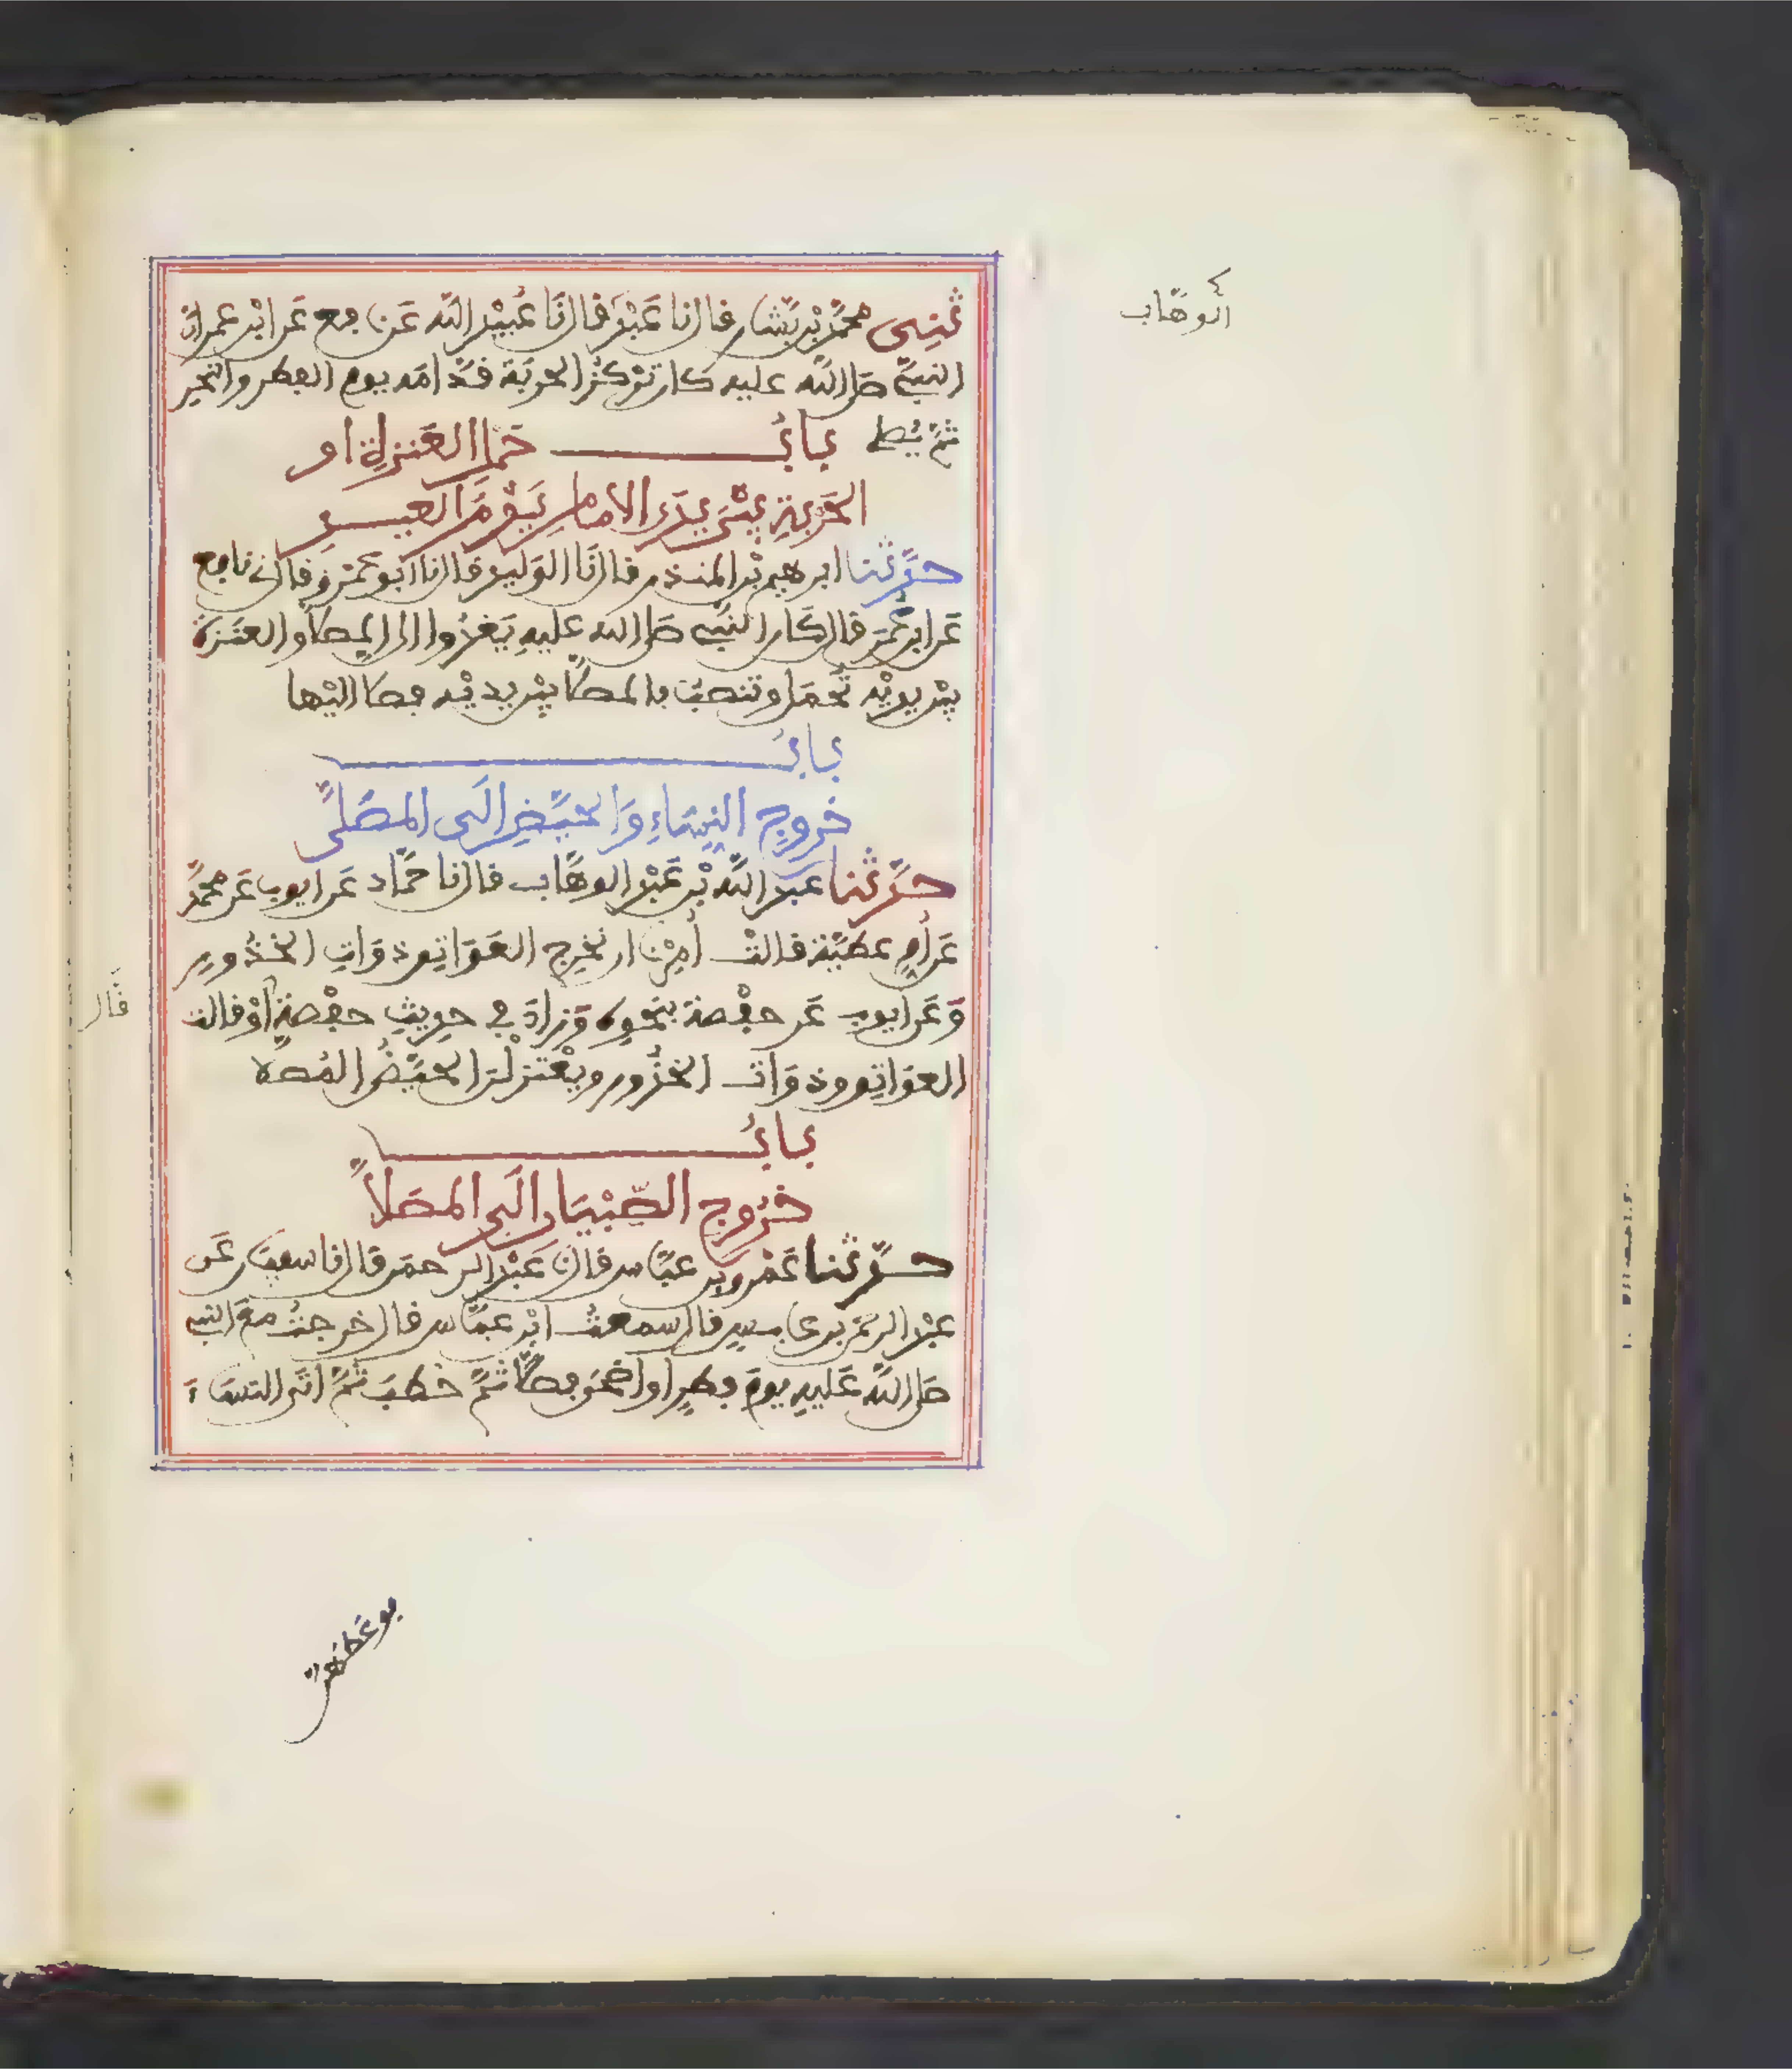 ثني محمد بن بشار قال نا عبد قال نا عبيد الله عن نافع عن ابن عمر ان
الوهاب
النبي صلى الله عليه كان تركز الحربة قدامه يوم الفطر والنحر
ثم يصلى باب حمل العنزة او
الحربة بين يدي الامام يوم العيد
حدثنا ابرهيم بن المنذر قال نا الوليد قال نا ابو عمرو قال ني نافع
عن ابن عمر قال كان النبي صلى الله عليه يغدوا الى المصلا والعنزة
بين يديه تحمل وتنصب بالمصلا بين يديه فصلا اليها
باب
خروج النساء والحيض الى المصلى
حدثنا عبد الله بن عبد الوهاب قال نا حماد عن ايوب عن محمد
عن ام عطية قالت أمرنا ان نخرج العواتق ذوات الخدور
وعن ايوب عن حفصة بنحوه وزاد في حديث حفصة أو قالت
قال
العواتق وذوات الخدور ويعتزلن الحيض المصلا
باب
خروج الصبيان الى المصلا
حدثنا عمرو بن عباس قال نا عبد الرحمن قال نا سفيان عن
عبد الرحمن بن عابس قال سمعت ابن عباس قال خرجت مع النبي
صلى الله عليه يوم فطر او اضحى فصلا ثم خطب ثم اتى النساء
فوعظهن